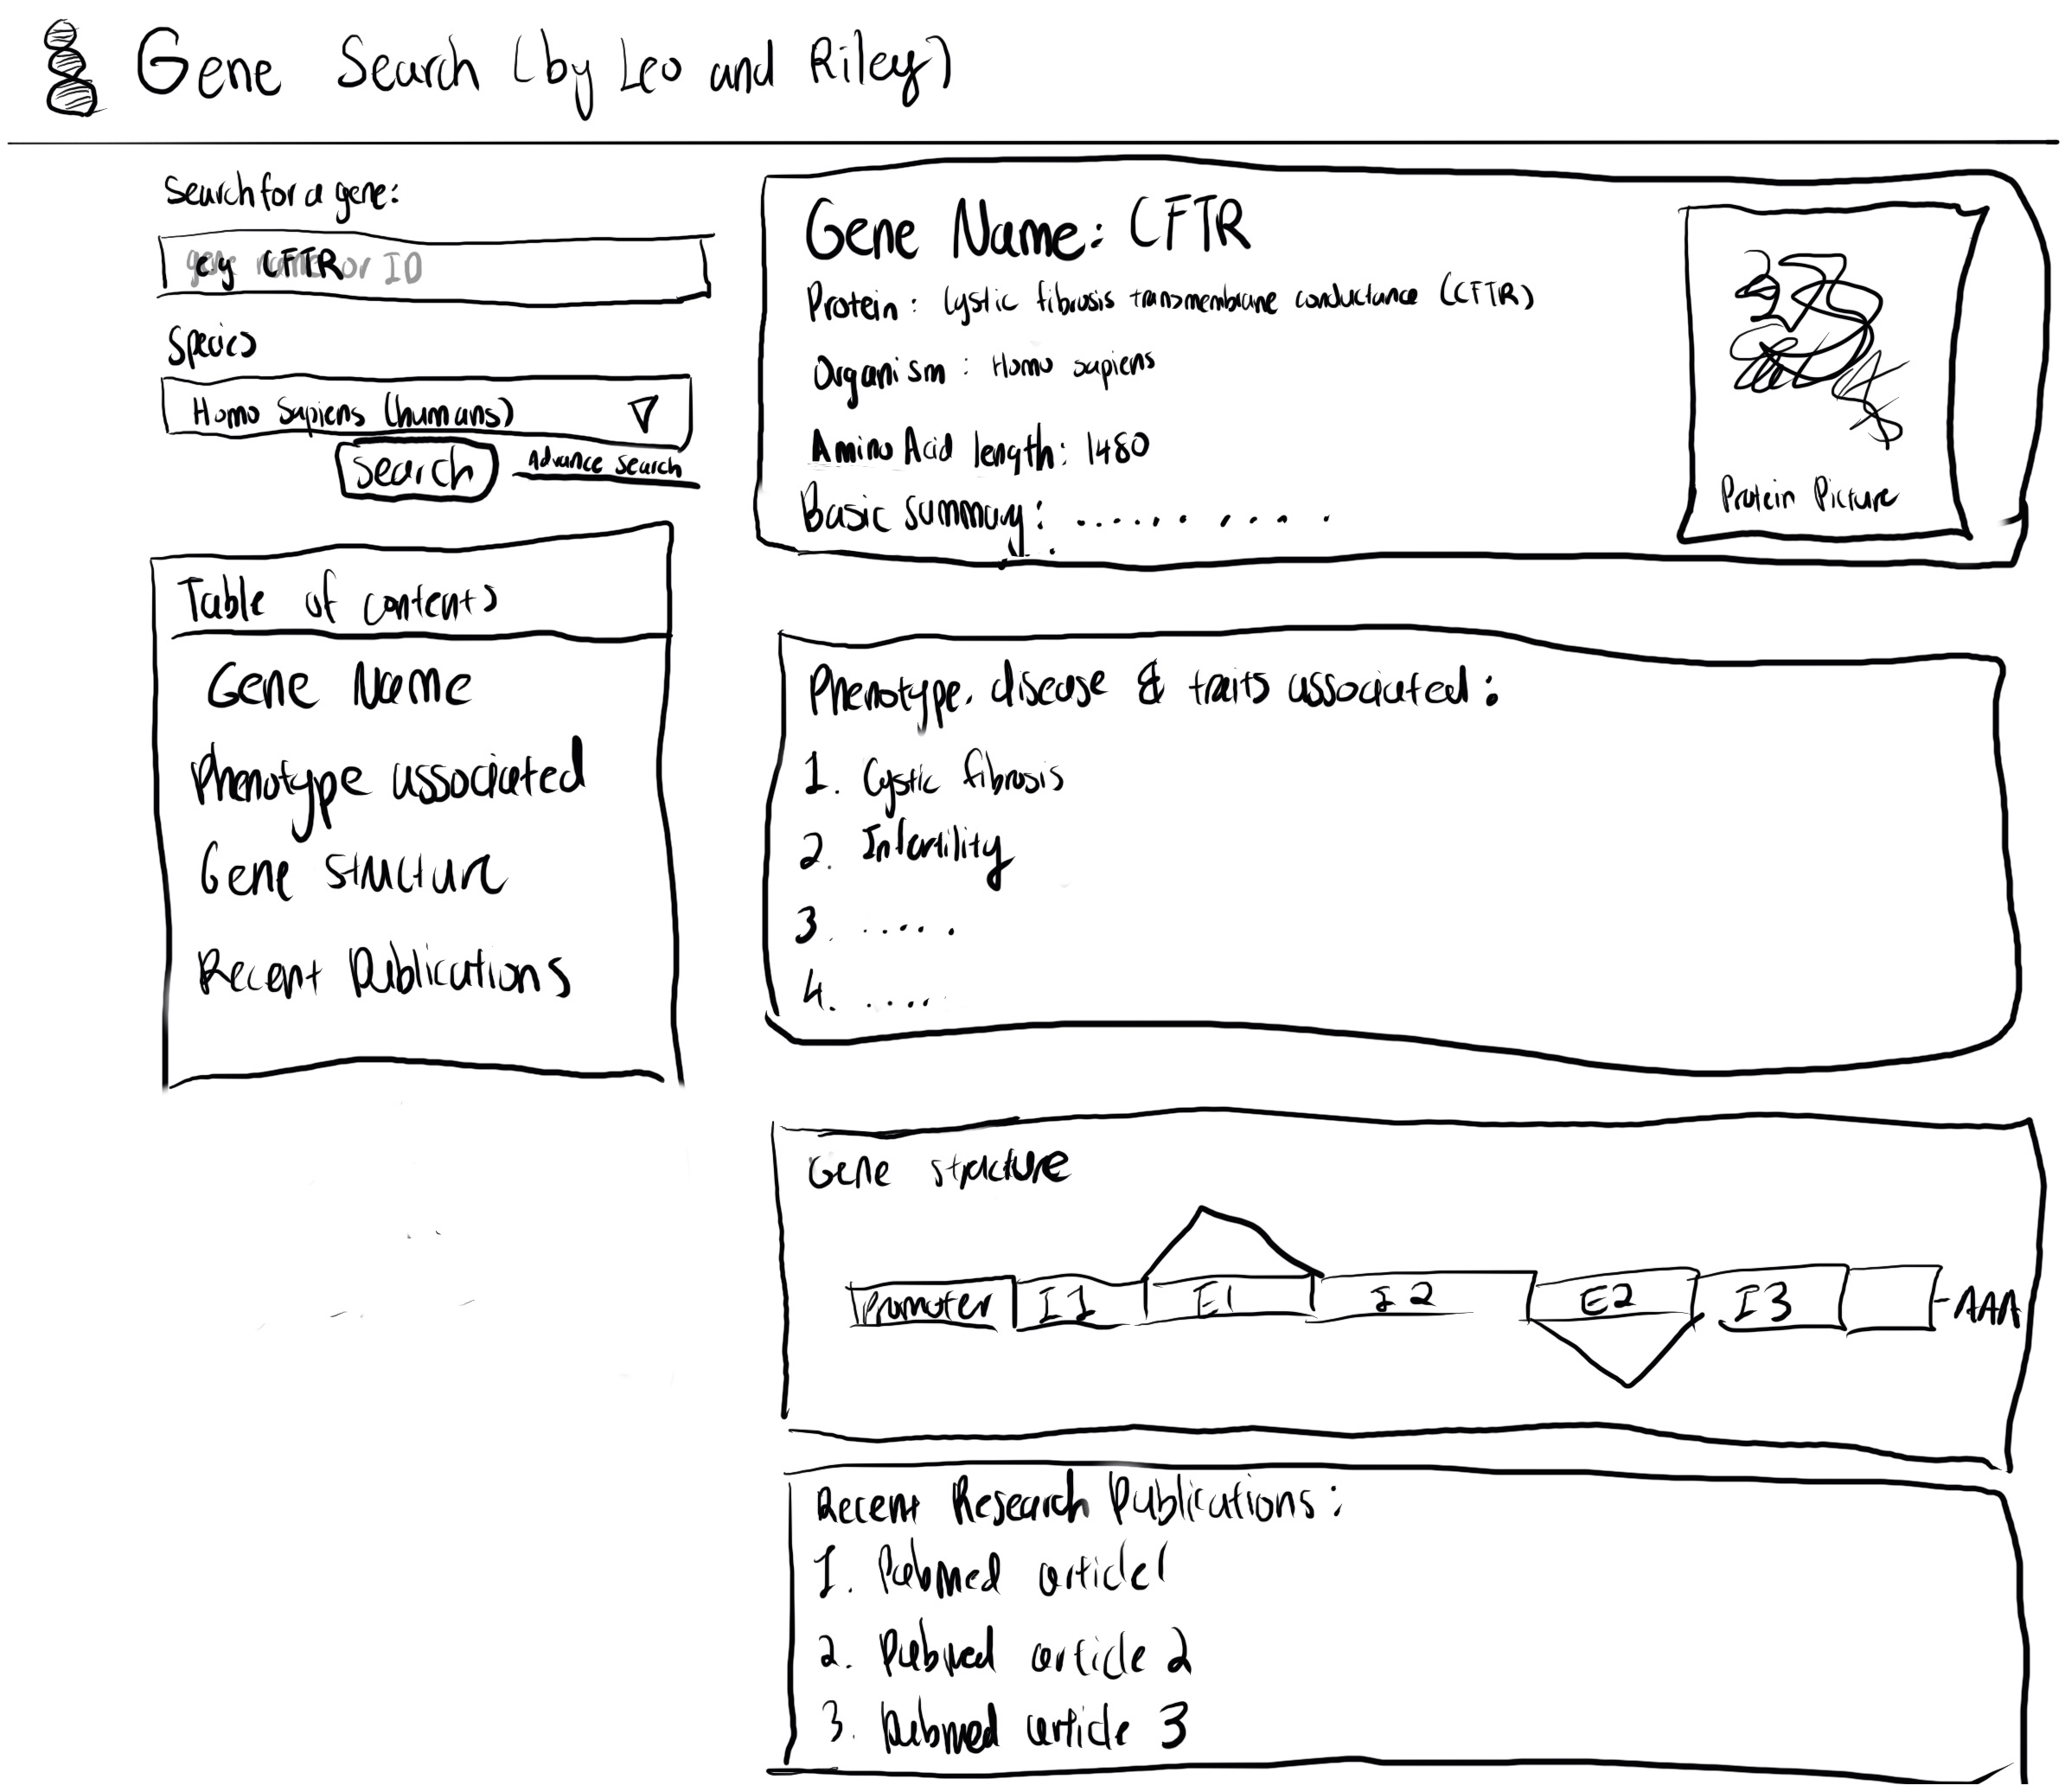 Gene Search (by Leo and Riley)
Search for a gene:
eg CFTR or ID
Species
Homo Sapiens (humans)
Search
Advance Search
Table of contents
Gene Name
Phenotype associated
Gene structure
Recent Publications
Gene Name: CFTR
Protein: Cystic fibrosis transmembrane conductance (CFTR)
Organism: Homo sapiens
Amino Acid length: 1480
Basic summary: ..........
Protein Picture
Phenotype, disease & traits associated:
1. Cystic fibrosis
2. Infertility
3. .....
4. .....
Gene structure
Promoter I1 E1 I2 E2 I3 -AAA
Recent Research Publications:
1. Pubmed article 1
2. Pubmed article 2
3. Pubmed article 3